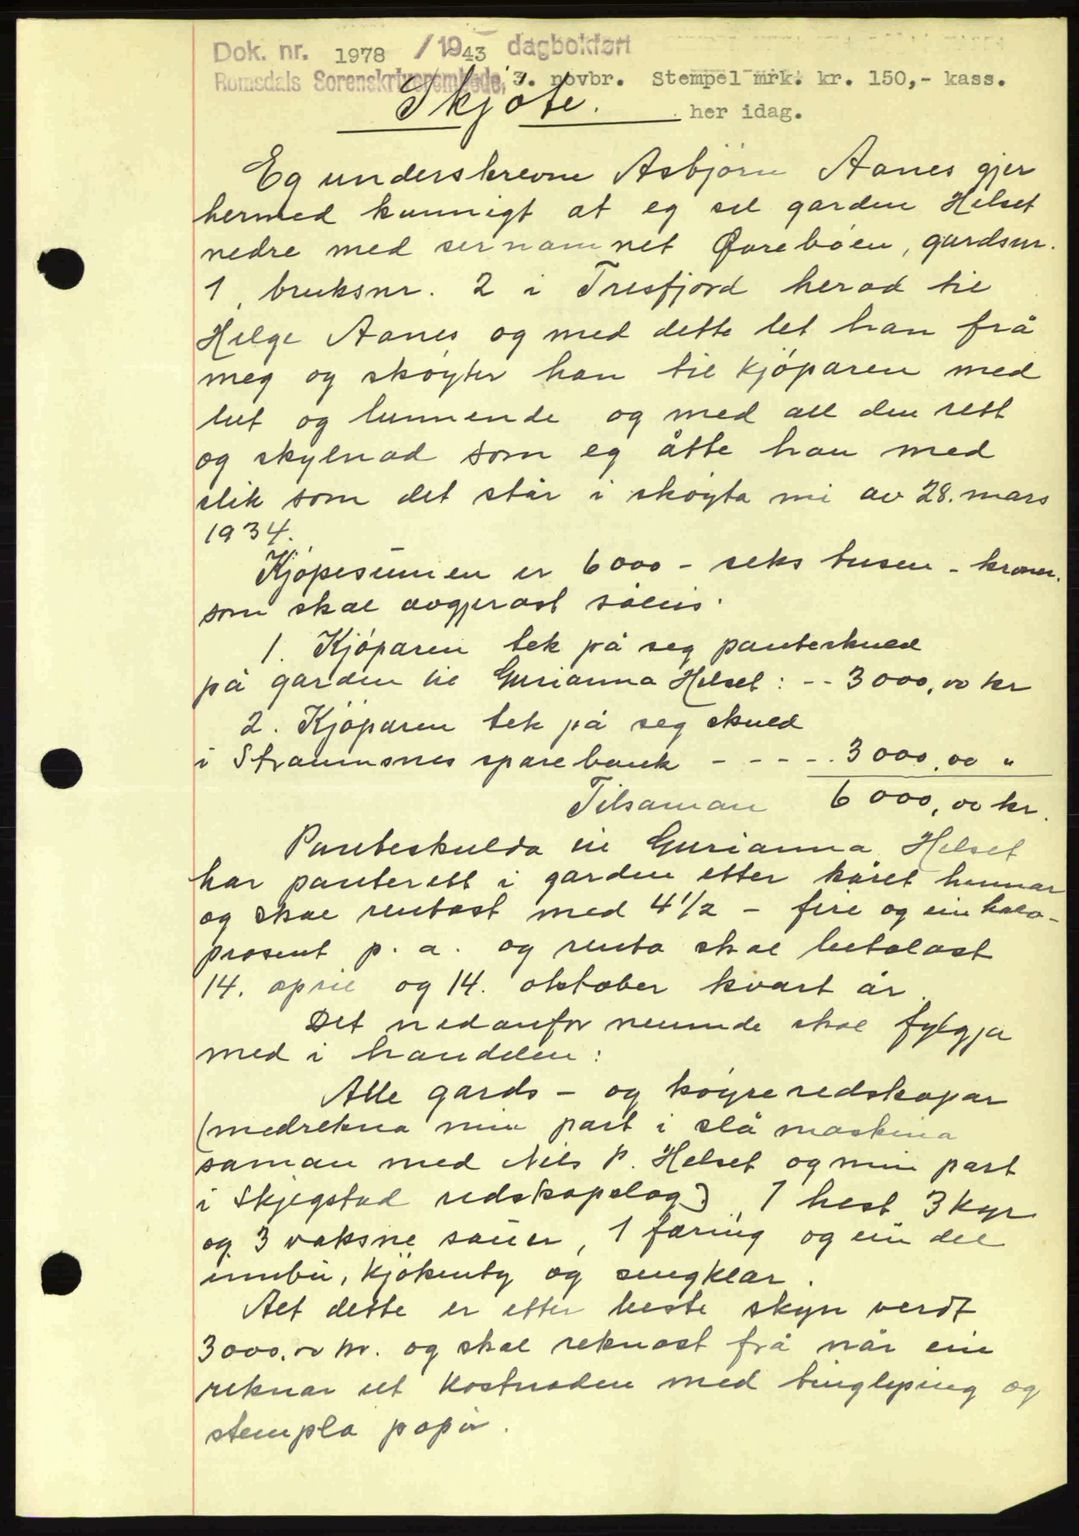 Dok. nr. 1978 /1943 dagbokført
Romsdals Sorenskriverembede, 3. novbr. Stempel mrk. kr. 150,- kass.
Skjøte. her idag.
Eg underskrevne Asbjørn Aanes gjer
hermed kunnigt at eg sel garden Helset
nedre med sernamnet Øvrebøen, gardsnr.
1, bruksnr. 2 i Tresfjord herad til
Helge Aanes og med dette let han frå
meg og skøyter han til kjøparen med
lut og lunnende og med all den rett
og skylnad som eg åtte han med
slik som det står i skøyta mi av 28. mars
1934.
Kjøpesumen er 6000 - seks tusen - kroner.
som skal avgjerast såleis:
1. Kjøparen tek på seg panteskuld
på garden til Gurianna Helset: -- 3000,00 kr
2. Kjøparen tek på seg skuld
i Straumsnes sparebank - - - - - 3000,00 "
Tilsaman 6000,00 kr.
Panteskulda til Gurianna Helset
har panterett i garden etter kåret hennar
og skal rentast med 4 1/2 - fire og ein halv -
prosent p. a. og renta skal betalast
14. april og 14. oktober kvart år.
Det nedanfor nemnde skal fylgja
med i handelen:
Alle gards- og køyreredskapar
(medrekna min part i slåmaskina
saman med Nils P. Helset og min part
i Skjegstad redskapslag) 1 hest 3 kyr
og 3 vaksne sauer, 1 færing og ein del
innbu, kjøkenty og sengklær.
Alt dette er etter beste skyn verdt
3000.00 kr. og skal reknast frå når ein
reknar ut kostnaden med tinglysing og
stempla papir.